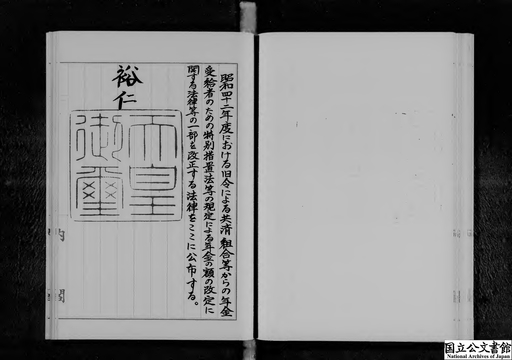 昭和四十二年度における旧令による共済組合等からの年金
受給者のための特別措置法等の規定による年金の額の改定に
関する法律等の一部を改正する法律をここに公布する。
裕仁
天皇
御璽
内閣
国立公文書館
National Archives of Japan